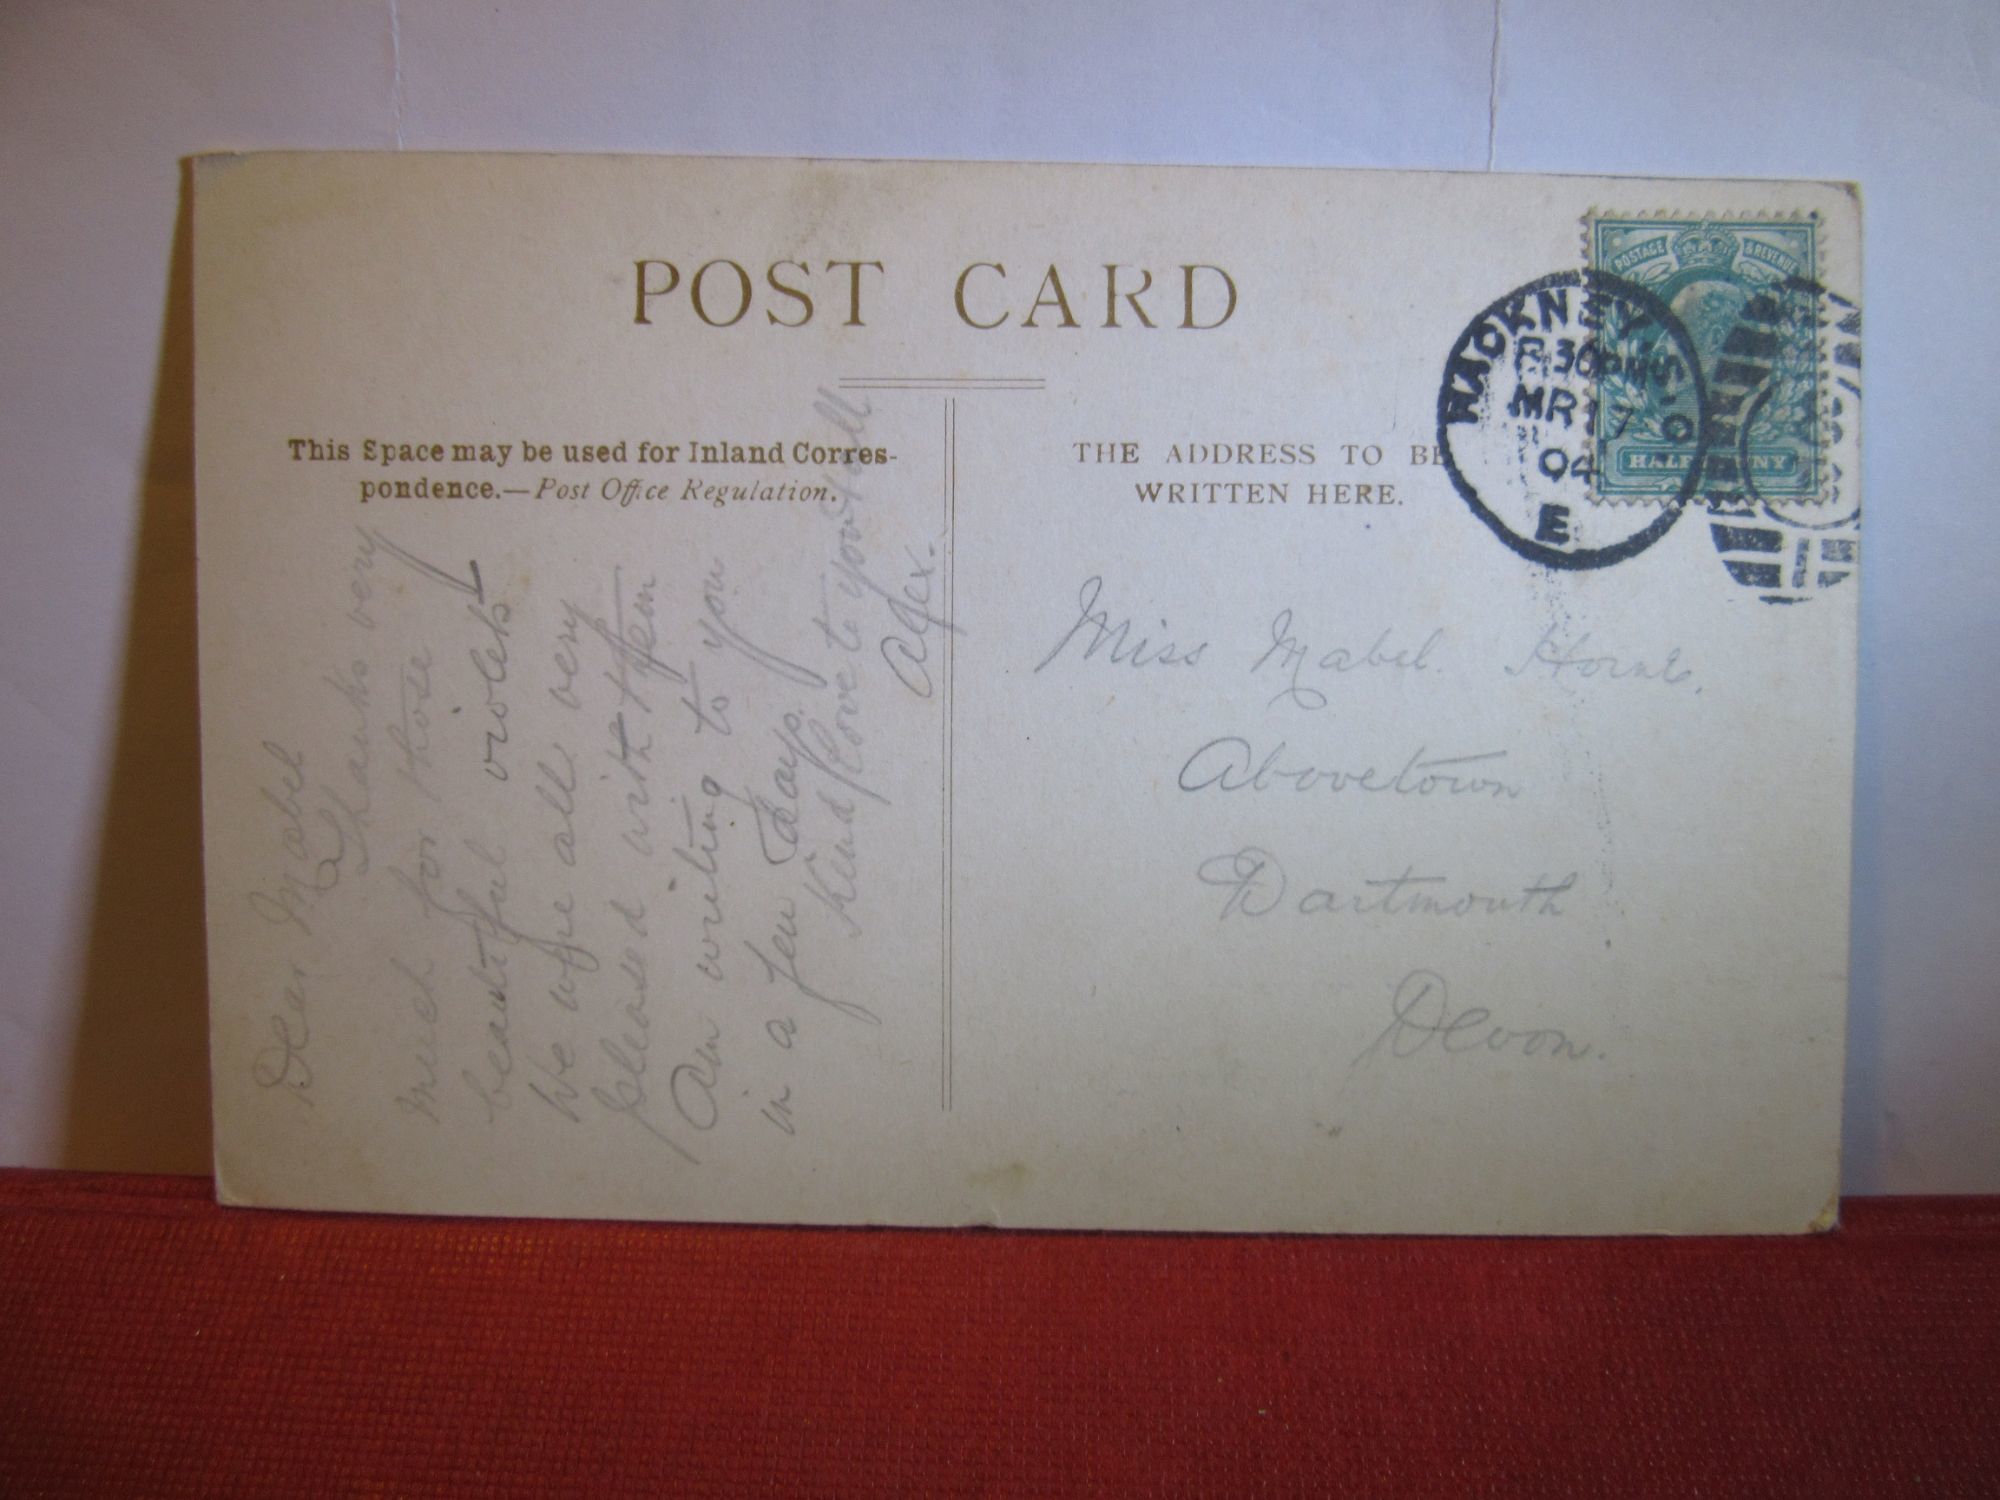 POST CARD
This Space may be used for Inland Corres-
pondence.—Post Office Regulation.
THE ADDRESS TO BE
WRITTEN HERE.
POSTAGE & REVENUE
HALFPENNY
HACKNEY S.O
30PM
MR 17
04
E
Dear Mabel
Thanks very
much for those
beautiful violets
We were all very
pleased with them
Am writing to you
in a few days.
Kind love to you all
Alex.
Miss Mabel.
Abovetown
Dartmouth
Devon.